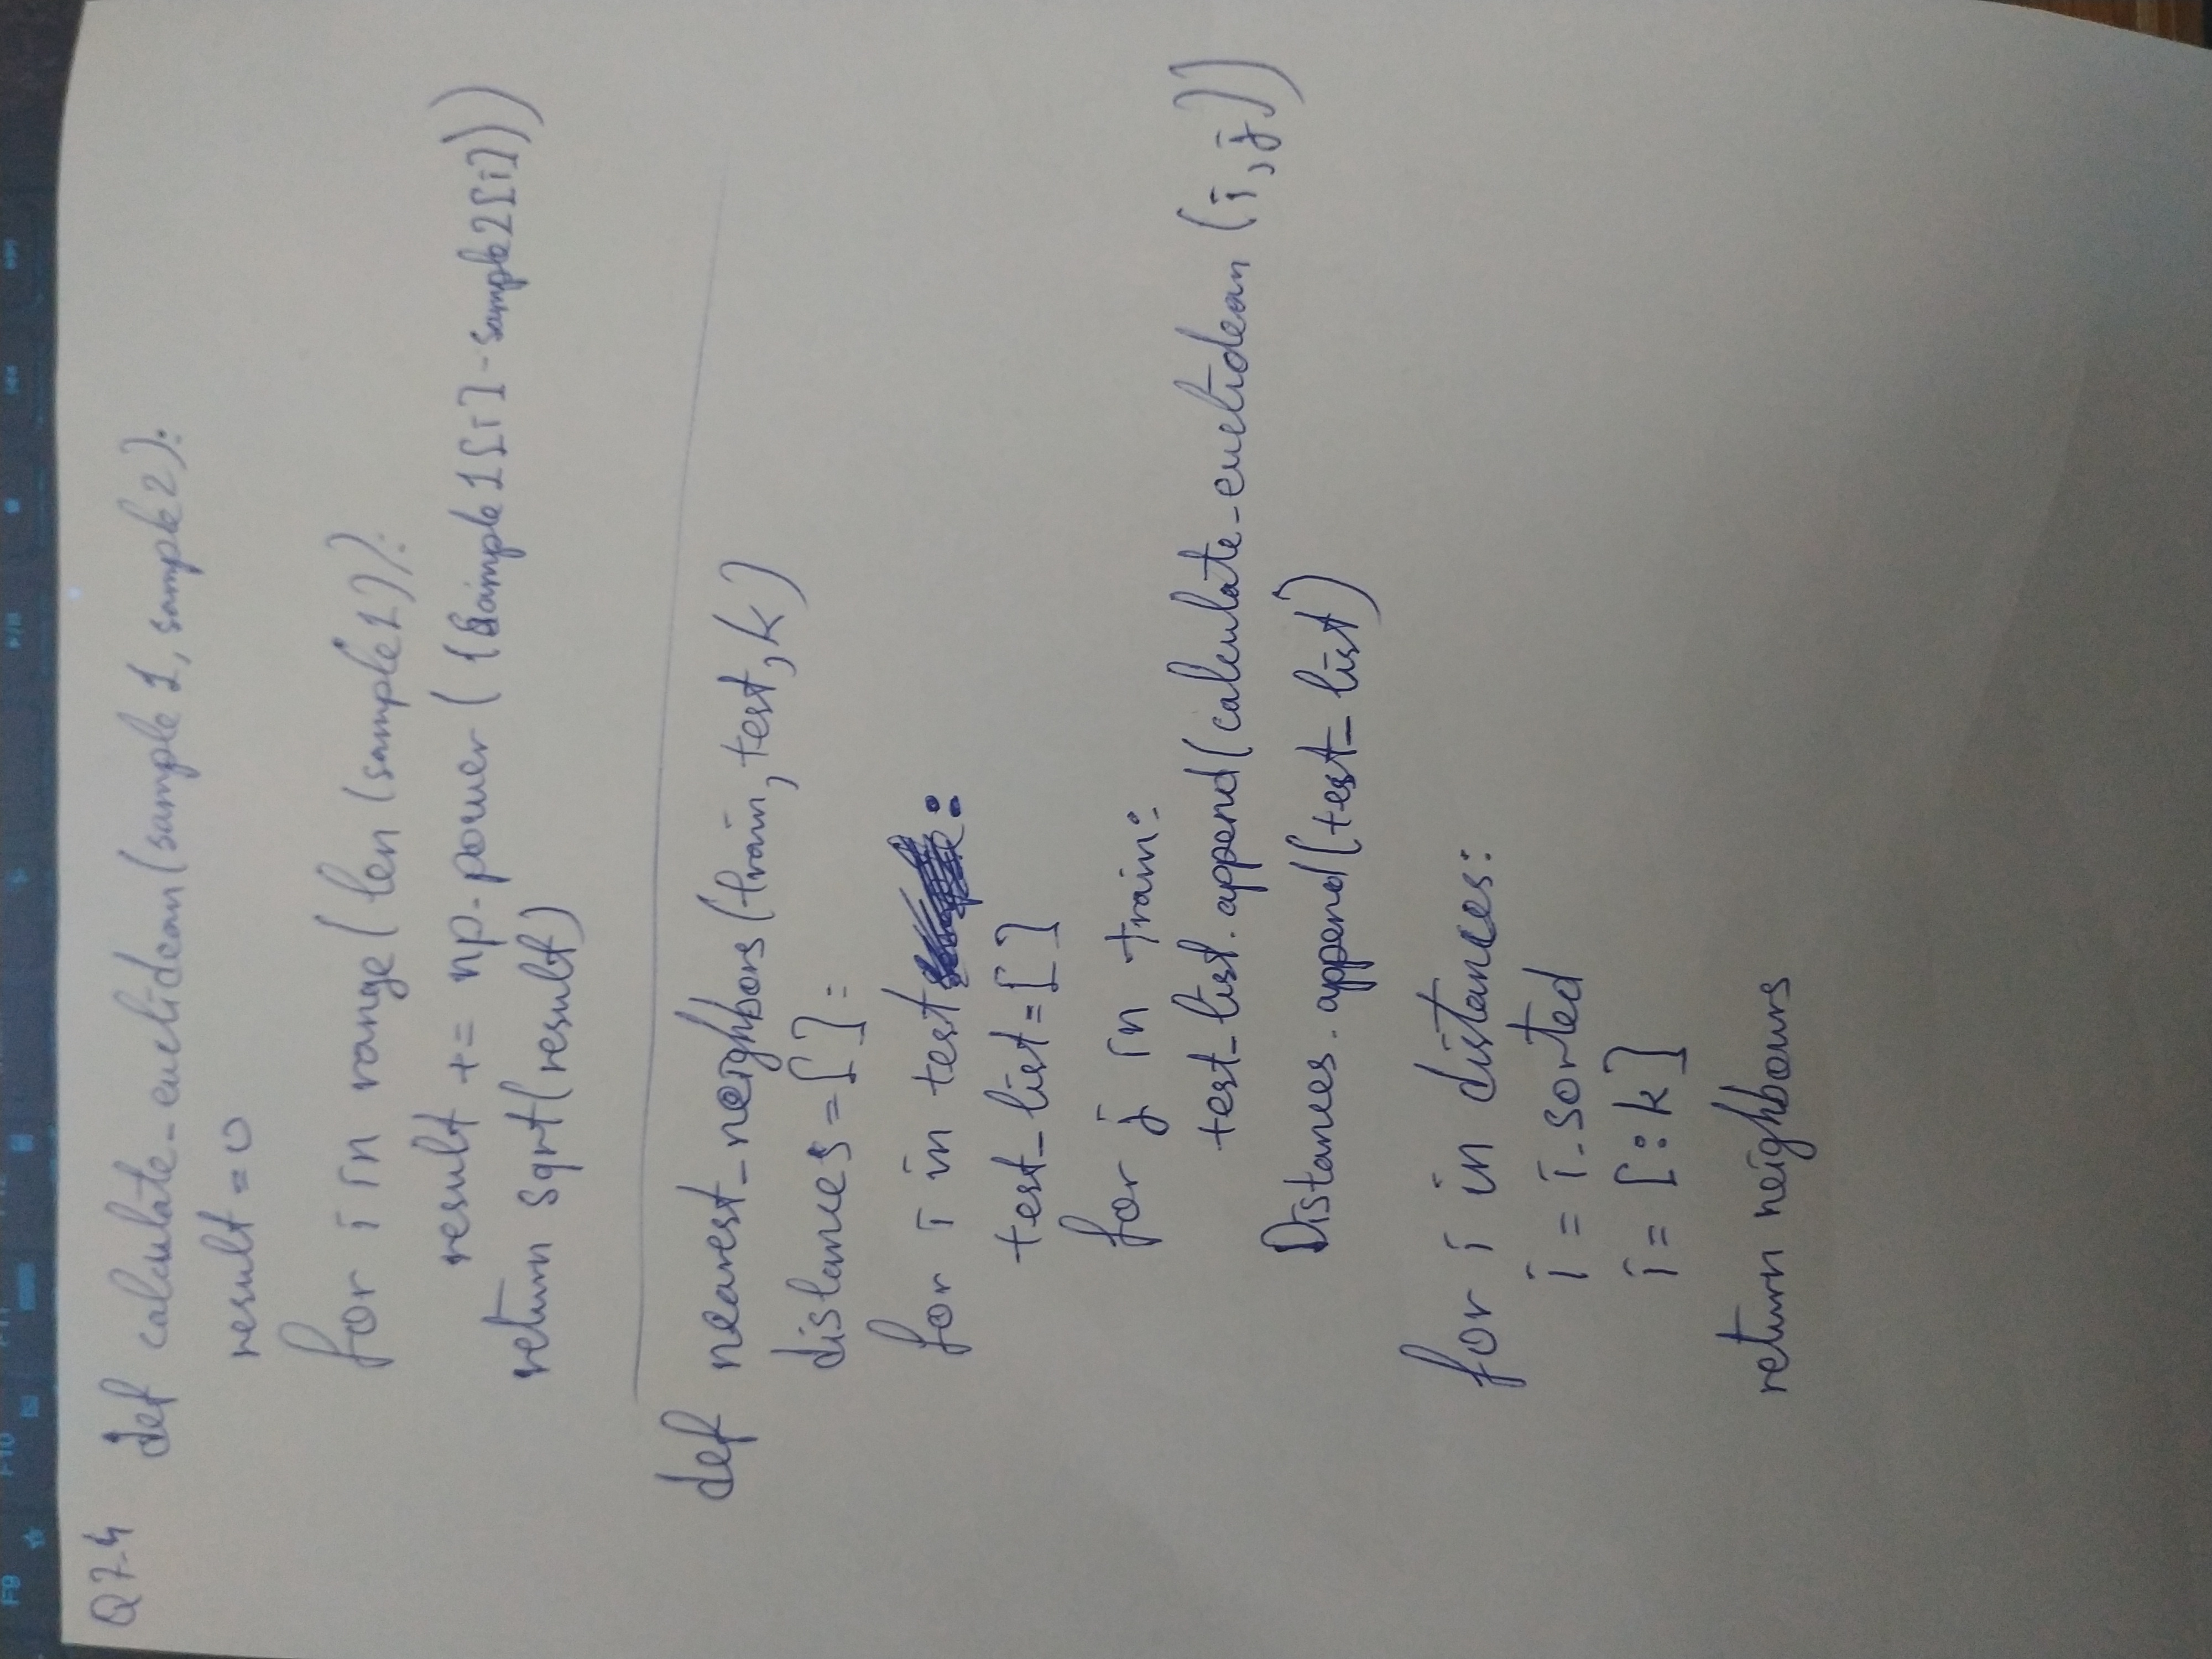 F9 F10 F11 F12
Q7.4
def calculate_euclidean(sample1, sample2):
result = 0
for i in range(len(sample1)):
result += np.power((sample1[i]-sample2[i]))
return sqrt(result)
def nearest_neighbors(train, test, k)
distances = []:
for i in test:
test_list = []
for j in train:
test_list.append(calculate_euclidean(i, j))
Distances.append(test_list)
for i in distances:
i = i.sorted
i = [:k]
return neighbours